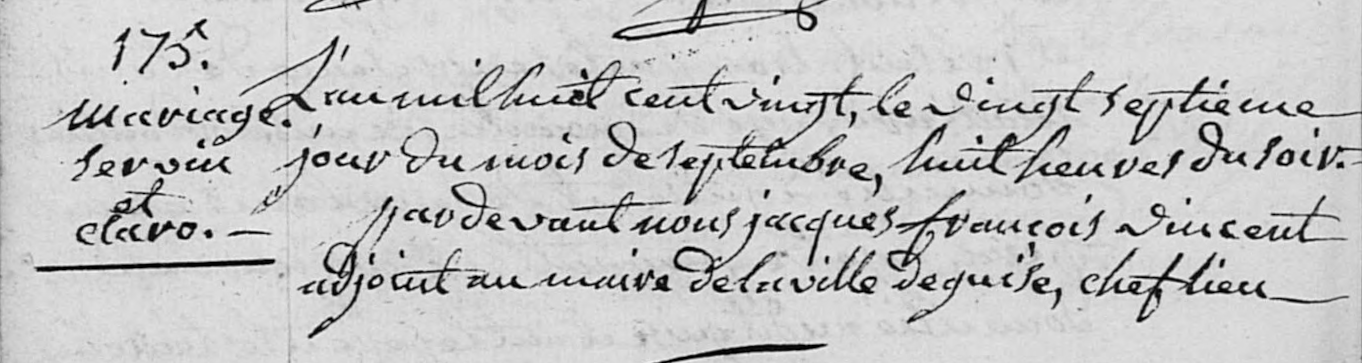 175.
Mariage.
servin
et
claro. —
L'an mil huit cent vingt, le vingt septieme
jour du mois de septembre, huit heures du soir. -
pardevant nous jacques françois vincent
adjoint au maire de la ville de guise, chef lieu —